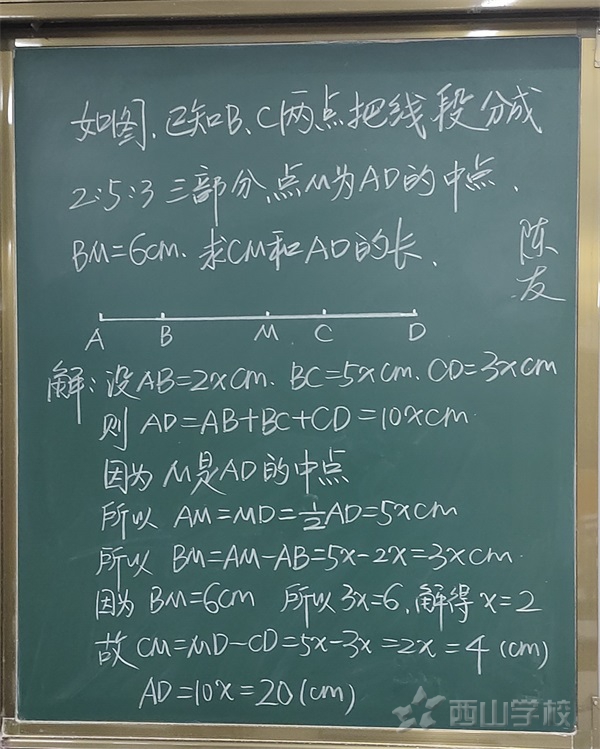 如图,已知B、C两点把线段分成
2:5:3三部分,点M为AD的中点,
BM=6cm.求CM和AD的长.
陈
友
A B M C D
解:设AB=2xcm. BC=5xcm. CD=3xcm
则 AD=AB+BC+CD=10xcm.
因为M是AD的中点
所以 AM=MD=½AD=5xcm
所以 BM=AM-AB=5x-2x=3xcm.
因为 BM=6cm 所以3x=6,解得x=2
故 CM=MD-CD=5x-3x=2x=4(cm)
AD=10x=20(cm)
西山学校